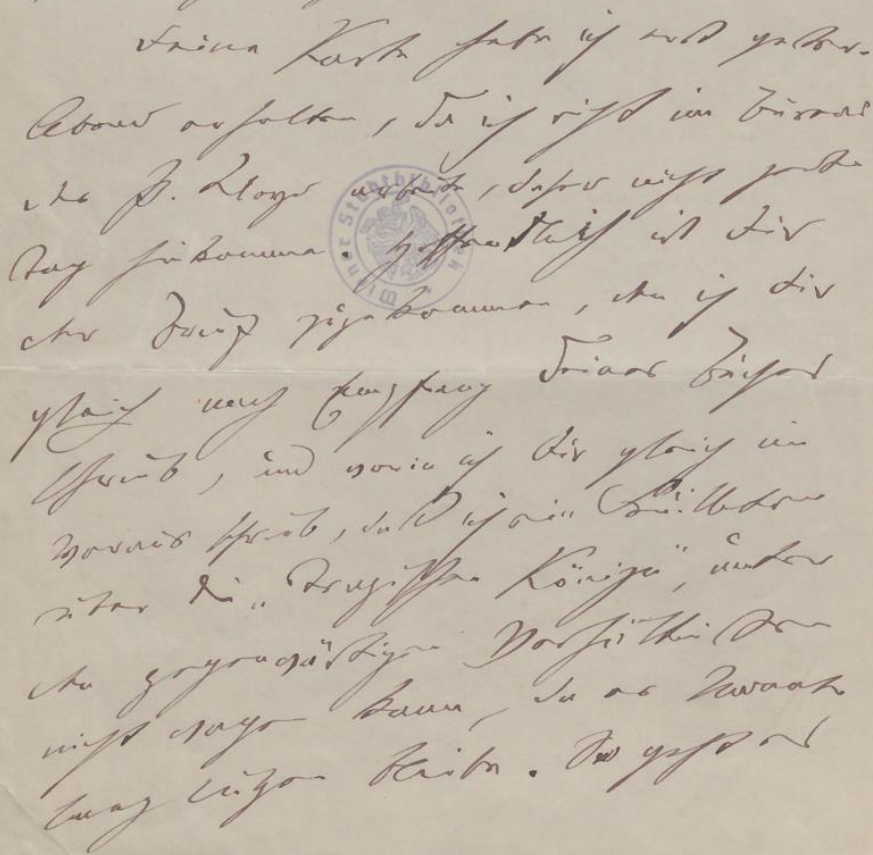 Deine Karte habe ich erst gestern
Abend erhalten, da ich nicht im Bureau
des P. Lloyd arbeite, daher nicht jeden
Tag hinkomme. Hoffentlich ist Dir
der Brief zugekommen, den ich Dir
gleich nach Empfang Deines Buches
schrieb, und worin ich Dir gleich im
voraus schrieb, daß ich ein Feuilleton
über die „Tragischen Könige“, unter
den gegenwärtigen Verhältnissen
nicht wagen kann, da es
lang liegen bliebe. So geht es
Wiener Stadtbibliothek